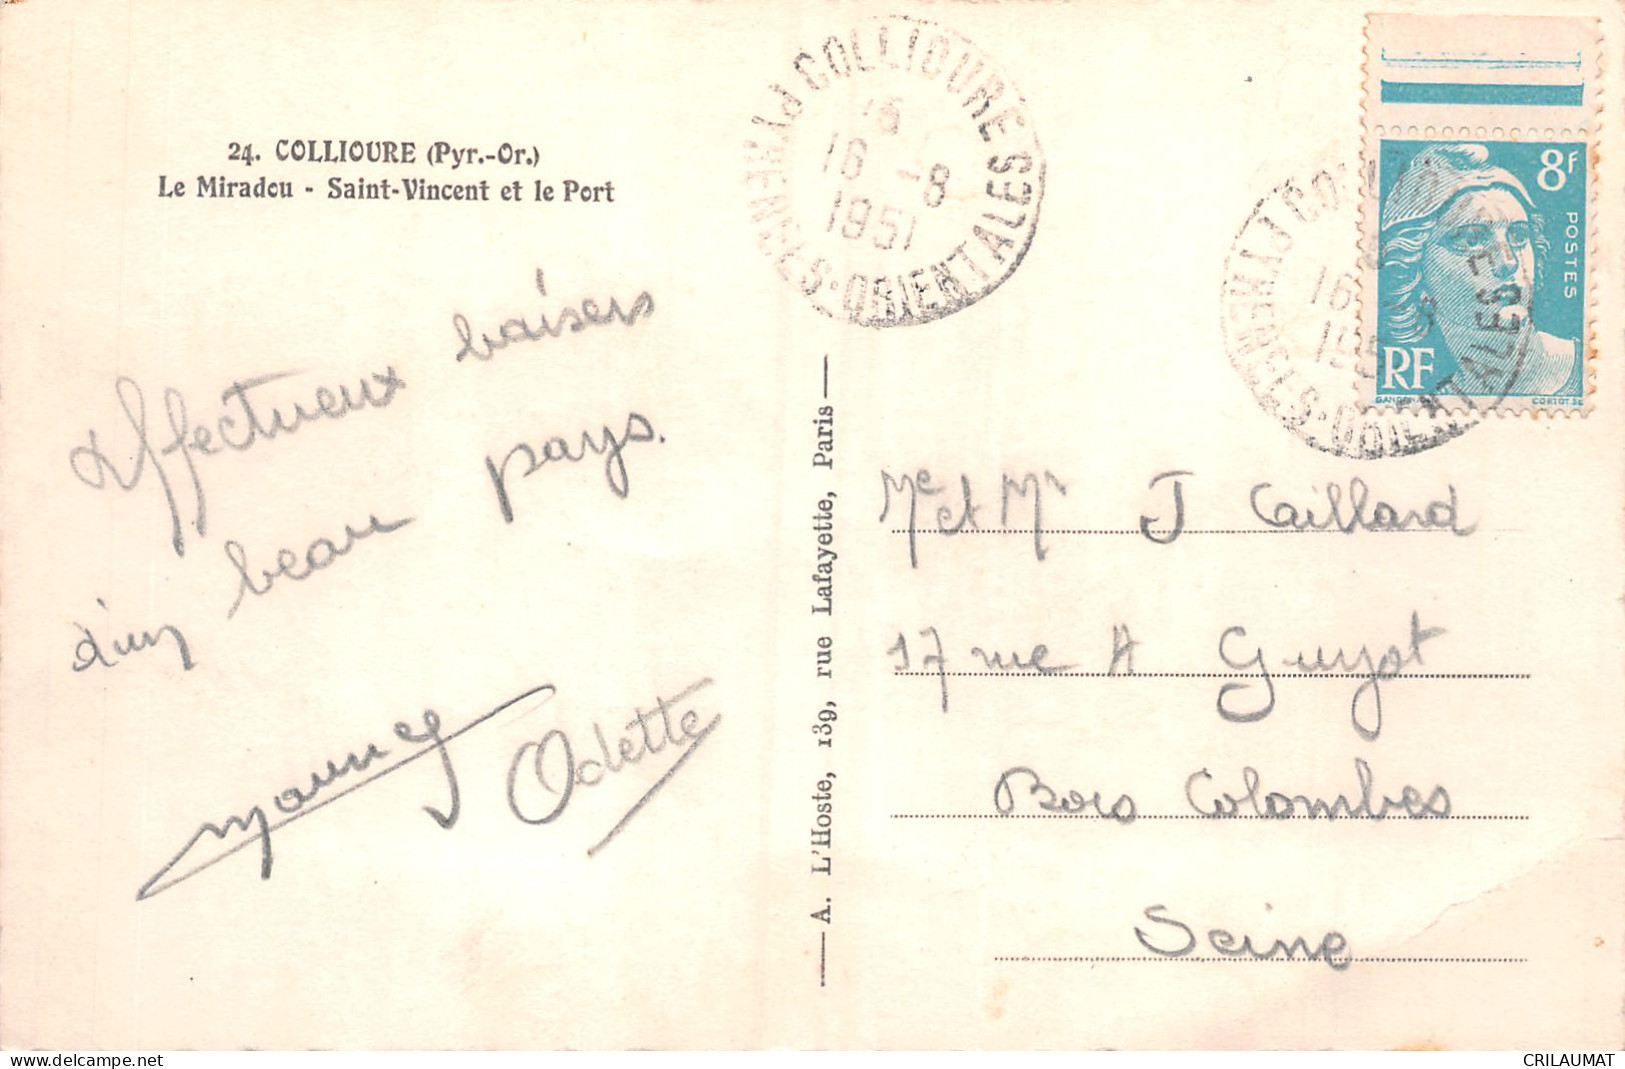 24. COLLIOURE (Pyr.-Or.)
Le Miradou - Saint-Vincent et le Port
COLLIOURE
PYRENEES-ORIENTALES
16 -8
1951
8F
POSTES
RF
GANDON
CORTOT SC
Affectueux baisers
d'un beau pays.
Odette
A. L'Hoste, 139, rue Lafayette, Paris
Me et Mr J Caillard
17 rue A Guyot
Bois Colombes
Seine
delcampe.net
CRILAUMAT